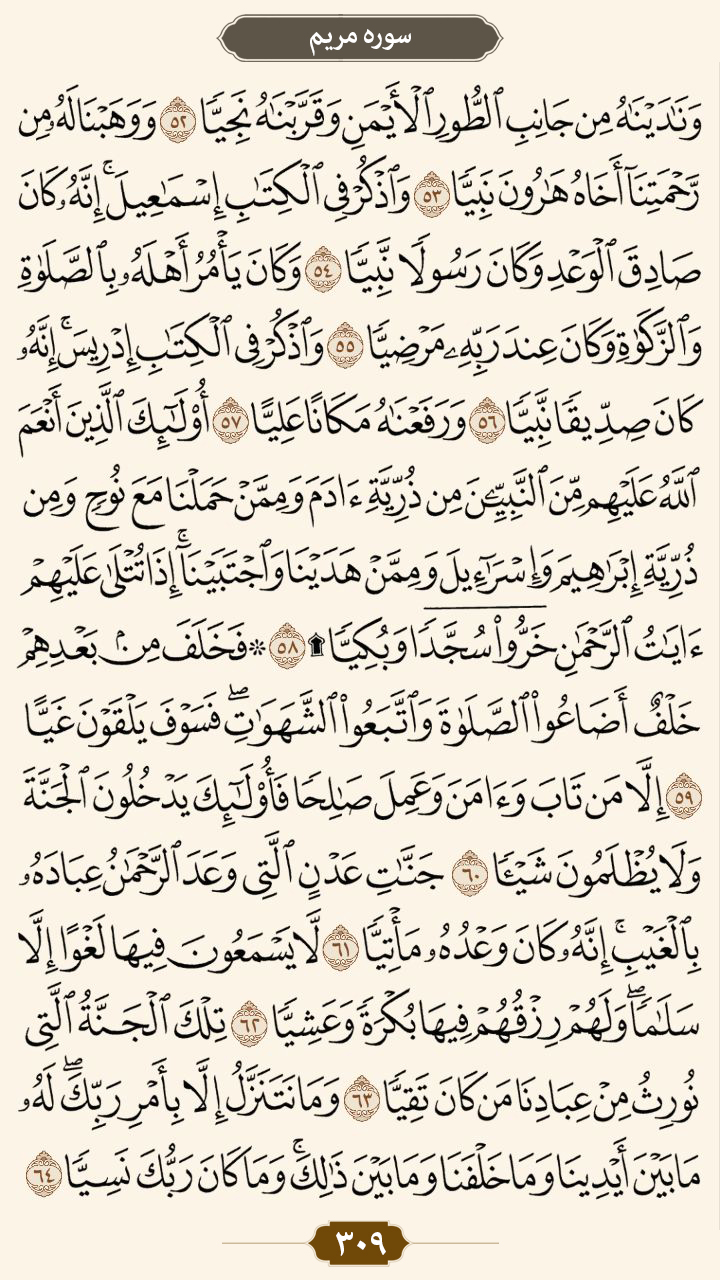 سوره مريم
وَنَٰدَيۡنَٰهُ مِن جَانِبِ ٱلطُّورِ ٱلۡأَيۡمَنِ وَقَرَّبۡنَٰهُ نَجِيّٗا ٥٢ وَوَهَبۡنَا لَهُۥ مِن
رَّحۡمَتِنَآ أَخَاهُ هَٰرُونَ نَبِيّٗا ٥٣ وَٱذۡكُرۡ فِي ٱلۡكِتَٰبِ إِسۡمَٰعِيلَۚ إِنَّهُۥ كَانَ
صَادِقَ ٱلۡوَعۡدِ وَكَانَ رَسُولٗا نَّبِيّٗا ٥٤ وَكَانَ يَأۡمُرُ أَهۡلَهُۥ بِٱلصَّلَوٰةِ
وَٱلزَّكَوٰةِ وَكَانَ عِندَ رَبِّهِۦ مَرۡضِيّٗا ٥٥ وَٱذۡكُرۡ فِي ٱلۡكِتَٰبِ إِدۡرِيسَۚ إِنَّهُۥ
كَانَ صِدِّيقٗا نَّبِيّٗا ٥٦ وَرَفَعۡنَٰهُ مَكَانًا عَلِيًّا ٥٧ أُوْلَٰٓئِكَ ٱلَّذِينَ أَنۡعَمَ
ٱللَّهُ عَلَيۡهِم مِّنَ ٱلنَّبِيِّـۧنَ مِن ذُرِّيَّةِ ءَادَمَ وَمِمَّنۡ حَمَلۡنَا مَعَ نُوحٖ وَمِن
ذُرِّيَّةِ إِبۡرَٰهِيمَ وَإِسۡرَٰٓءِيلَ وَمِمَّنۡ هَدَيۡنَا وَٱجۡتَبَيۡنَآۚ إِذَا تُتۡلَىٰ عَلَيۡهِمۡ
ءَايَٰتُ ٱلرَّحۡمَٰنِ خَرُّواْۤ سُجَّدٗا وَبُكِيّٗا ۩ ٥٨ * فَخَلَفَ مِنۢ بَعۡدِهِمۡ
خَلۡفٌ أَضَاعُواْ ٱلصَّلَوٰةَ وَٱتَّبَعُواْ ٱلشَّهَوَٰتِۖ فَسَوۡفَ يَلۡقَوۡنَ غَيًّا
٥٩ إِلَّا مَن تَابَ وَءَامَنَ وَعَمِلَ صَٰلِحٗا فَأُوْلَٰٓئِكَ يَدۡخُلُونَ ٱلۡجَنَّةَ
وَلَا يُظۡلَمُونَ شَيۡـٔٗا ٦٠ جَنَّٰتِ عَدۡنٍ ٱلَّتِي وَعَدَ ٱلرَّحۡمَٰنُ عِبَادَهُۥ
بِٱلۡغَيۡبِۚ إِنَّهُۥ كَانَ وَعۡدُهُۥ مَأۡتِيّٗا ٦١ لَّا يَسۡمَعُونَ فِيهَا لَغۡوًا إِلَّا
سَلَٰمٗاۖ وَلَهُمۡ رِزۡقُهُمۡ فِيهَا بُكۡرَةٗ وَعَشِيّٗا ٦٢ تِلۡكَ ٱلۡجَنَّةُ ٱلَّتِي
نُورِثُ مِنۡ عِبَادِنَا مَن كَانَ تَقِيّٗا ٦٣ وَمَا نَتَنَزَّلُ إِلَّا بِأَمۡرِ رَبِّكَۖ لَهُۥ
مَا بَيۡنَ أَيۡدِينَا وَمَا خَلۡفَنَا وَمَا بَيۡنَ ذَٰلِكَۚ وَمَا كَانَ رَبُّكَ نَسِيّٗا ٦٤
٣٠٩